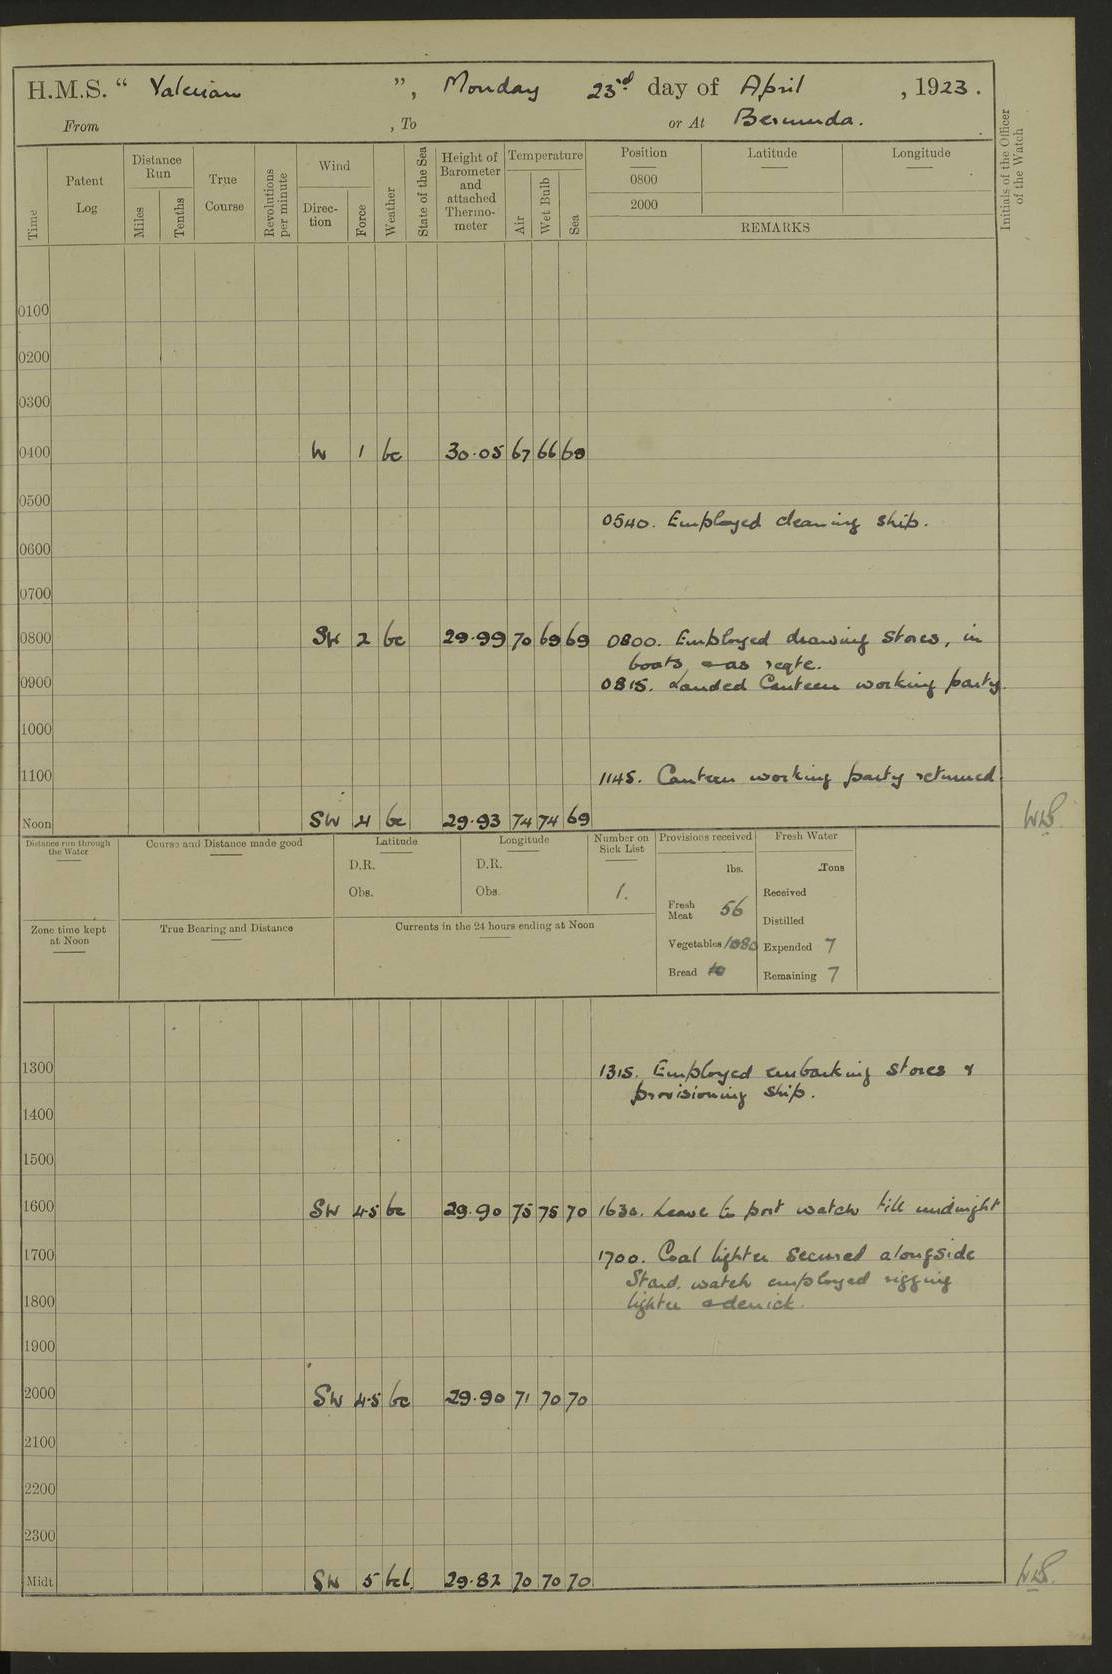 H.M.S. “ Valerian ”, Monday 23rd day of April , 1923.
From , To or At Bermuda.
Time
Patent Log
Distance Run
Miles
Tenths
True Course
Revolutions per minute
Wind
Direction
Force
Weather
State of the Sea
Height of Barometer and attached Thermometer
Temperature
Air
Wet Bulb
Sea
Position
0800
2000
Latitude
Longitude
REMARKS
Initials of the Officer of the Watch
0100
0200
0300
0400 W 1 bc 30.05 67 66 68
0500
0540. Employed cleaning ship.
0600
0700
0800 SW 2 bc 29.99 70 69 69 0800. Employed drawing stores, in
boats & as reqte.
0900 0815. Landed Canteen working party.
1000
1100 1145. Canteen working party returned.
Noon SW 4 bc 29.93 74 74 69
Distance run through the Water
Course and Distance made good
Latitude
D.R.
Obs.
Longitude
D.R.
Obs.
Number on Sick List
1.
Provisions received
lbs.
Fresh Meat 56
Vegetables 1080
Bread
Fresh Water
Tons
Received
Distilled
Expended 7
Remaining 7
Zone time kept at Noon
True Bearing and Distance
Currents in the 24 hours ending at Noon
1300 1315. Employed embarking stores &
provisioning ship.
1400
1500
1600 SW 4-5 bc 29.90 75 75 70 1630. Leave to port watch till midnight
1700 1700. Coal lighter secured alongside
Starbd. watch employed rigging
1800 lighter & derrick.
1900
2000 SW 4-5 bc 29.90 71 70 70
2100
2200
2300
Midt SW 5 bcl 29.82 70 70 70